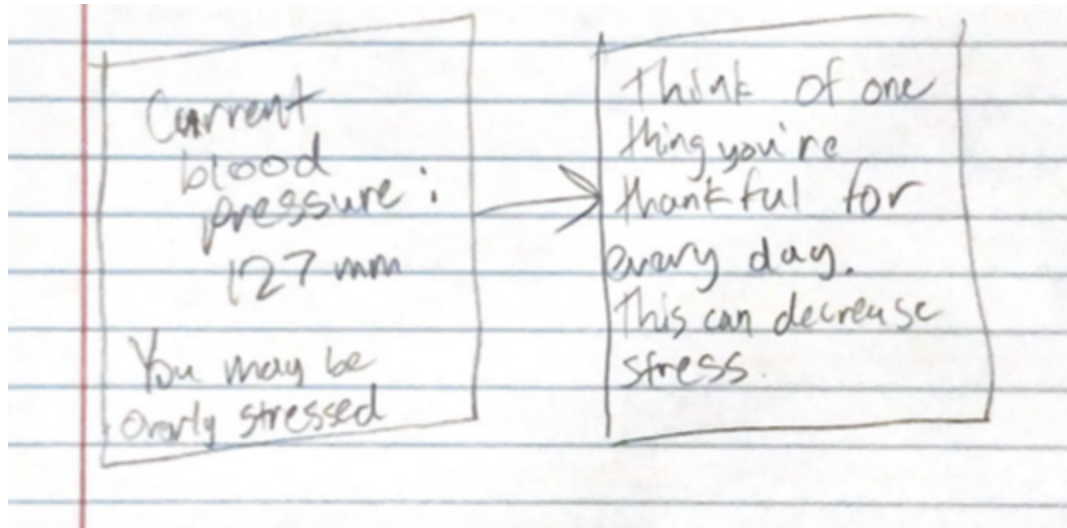 Current
blood
pressure:
127 mm
You may be
overly stressed
Think of one
thing you're
thankful for
every day.
This can decrease
stress.